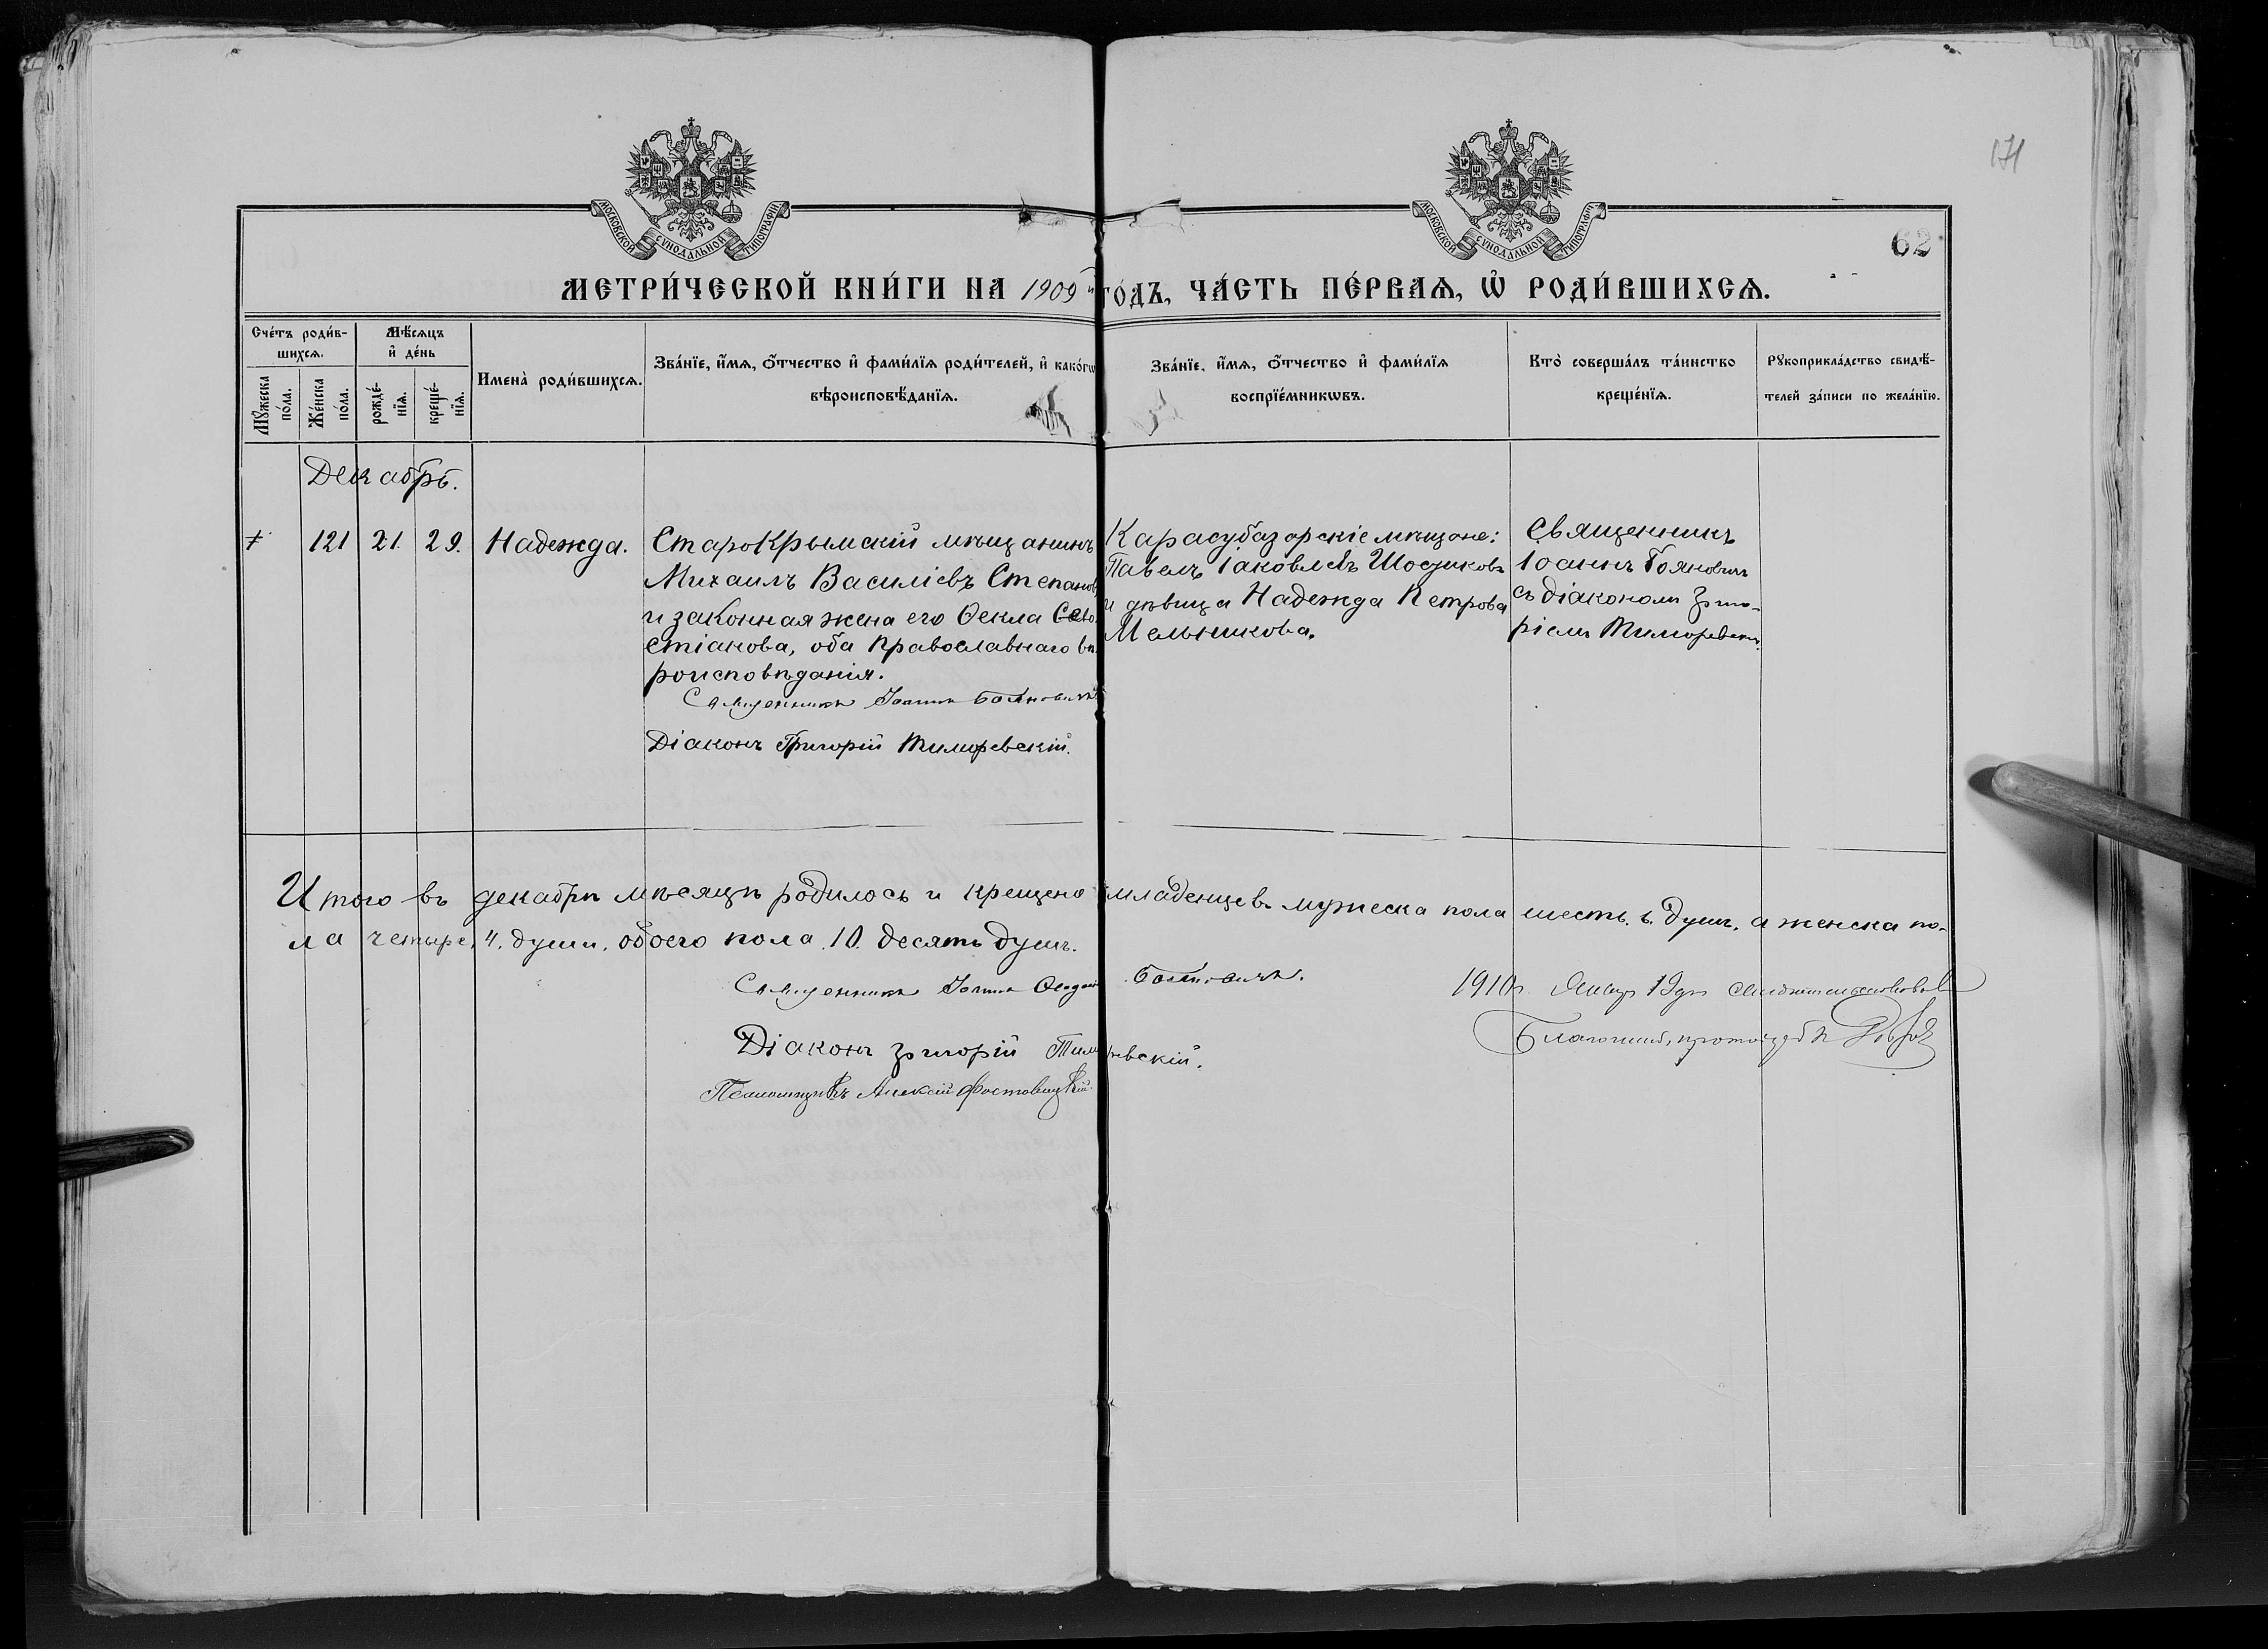 171
МОСКОВСКОЙ СѴНОДАЛЬНОЙ ТИПОГРАФІИ
МОСКОВСКОЙ СѴНОДАЛЬНОЙ ТИПОГРАФІИ
62
МЕТРИ́ЧЕСКОЙ КНИ́ГИ НА 1909й ГО́ДЪ, ЧА́СТЬ ПЕ́РВАѦ, Ѡ҆ РОДИ́ВШИХСѦ.
Сче́тъ роди́в-
шихсѧ.
Мѣ́сѧцъ
и҆ де́нь
Мꙋ́жеска
по́ла.
Же́нска
по́ла.
рожде́-
нїѧ.
креще́-
нїѧ.
Имена̀ роди́вшихсѧ.
Зва́нїе, и҆́мѧ, ѻ҆́тчество и҆ фами́лїѧ роди́телей, и҆ како́гѡ
вѣроисповѣ́данїѧ.
Зва́нїе, и҆́мѧ, ѻ҆́тчество и҆ фами́лїѧ
воспрїе́мникѡвъ.
Кто̀ соверша́лъ та́инство
креще́нїѧ.
Рꙋкоприкла́дство свидѣ́-
телей за́писи по жела́нїю.
Декабрь.
121 21. 29. Надежда.
СтароКрымскій мѣщанинъ
Михаилъ Василіевъ Степановъ
и законная жена его Ѳекла Сево-
стіанова, оба Православнаго вѣ-
роисповѣданія.
Священникъ Іоаннъ Бояновичъ
Діаконъ Григорій Тиморевскій.
Карасубазарскіе мѣщане:
Павелъ Іаковлевъ
и дѣвица Надежда Петрова
Мельникова.
Священникъ
Іоаннъ Бояновичъ
съ діакономъ Григо-
ріемъ Тиморевскимъ.
Итого въ декабрѣ мѣсяцѣ родилось и крещено младенцевъ мужеска пола шесть. 6. душъ, а женска по-
ла четыре, 4. души, обоего пола 10. десять душъ.
Священникъ Іоаннъ Бояновичъ.
Діаконъ Григорій Тиморевскій.
Псаломщикъ Алексій
1910 г. Январ 19 дн
Благочинный, протоіерей